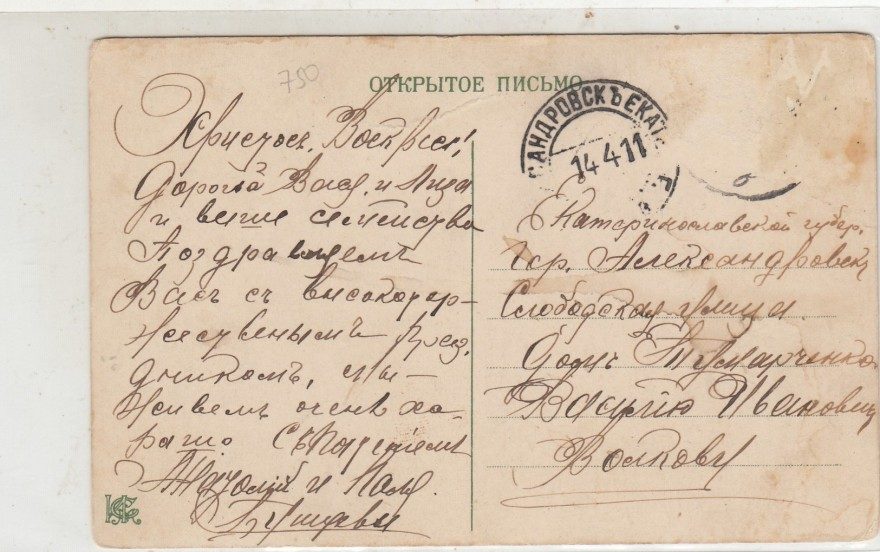 750
ОТКРЫТОЕ ПИСЬМО
САНДРОВСКЪ ЕКАТ
14 4 11
Христосъ Воскресъ!
Дорогой Вася и Лиза
и ваше семейство
Поздравляемъ
Васъ съ высокотор-
жественымъ празд.
дникомъ, мы
живемъ очень ха
рашо съ
и
Екатеринославской губер.
гор. Александровскъ
Слободская улица
домъ Тумарченко
Василію Ивановичу
Волкову